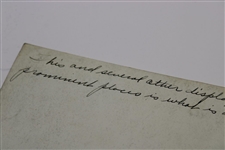 This and several other displa
prominent places is what is